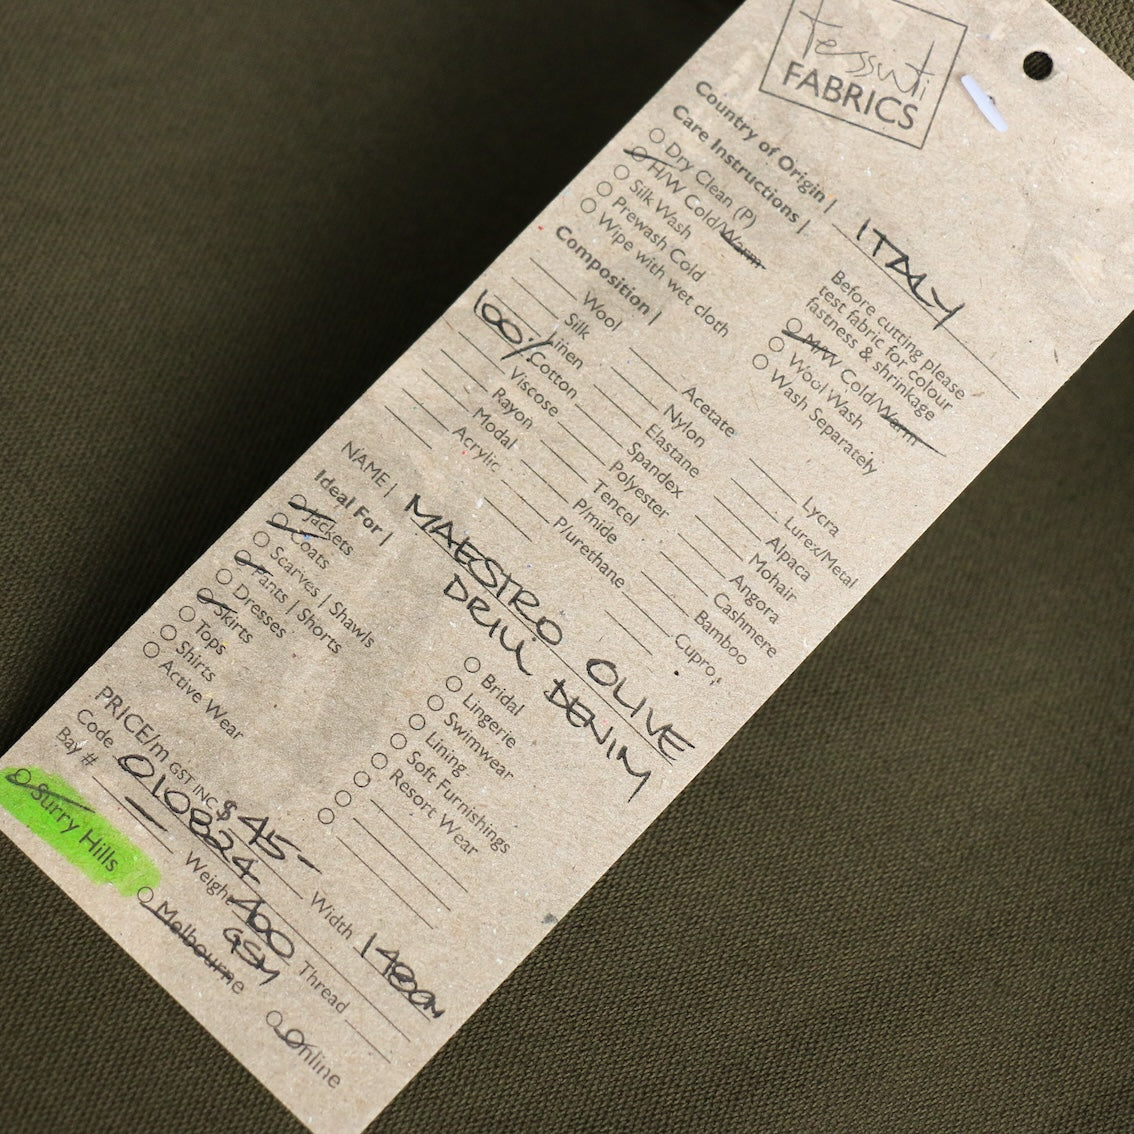 Tessuti
FABRICS
Country of Origin | ITALY
Care Instructions |
Dry Clean (P)
H/W Cold/Warm
Silk Wash
Prewash Cold
Wipe with wet cloth
Before cutting please
test fabric for colour
fastness & shrinkage
M/W Cold/Warm
Wool Wash
Wash Separately
Composition |
Wool
Silk
Linen
100% Cotton
Viscose
Rayon
Modal
Acrylic
Acetate
Nylon
Elastane
Spandex
Polyester
Tencel
P/mide
P/urethane
Lycra
Lurex/Metal
Alpaca
Mohair
Angora
Cashmere
Bamboo
Cupro
NAME | MAESTRO OLIVE
DRILL DENIM
Ideal For |
Jackets
Coats
Scarves | Shawls
Pants | Shorts
Dresses
Skirts
Tops
Shirts
Active Wear
Bridal
Lingerie
Swimwear
Lining
Soft Furnishings
Resort Wear
PRICE/m GST INC $45- Width 148cm
Code 010824 Weight 400 GSM Thread
Bay # —
Surry Hills
Melbourne
Online